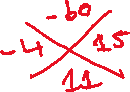 -60
-4 15
11